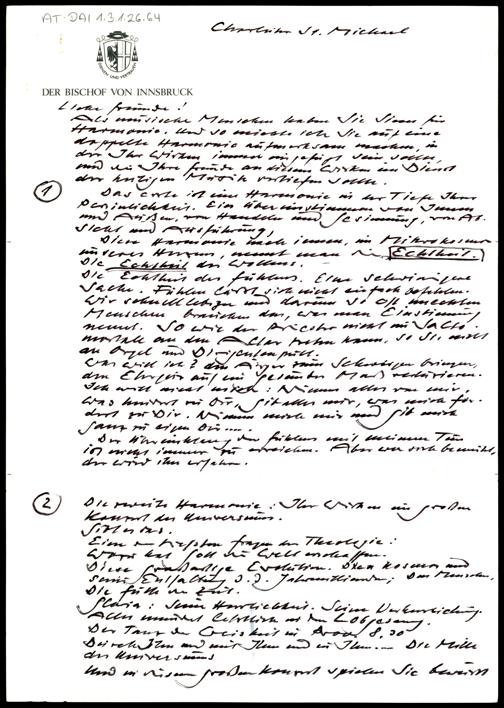 AT-DAI 1.3.1.26.64
Chorleiter St. Michael
DIENEN UND VERTRAUEN
DER BISCHOF VON INNSBRUCK
Liebe Freunde!
Als musische Menschen haben Sie Sinn für
Harmonie. Und so möchte ich Sie auf eine
doppelte Harmonie aufmerksam machen, in
der Ihr Wirken immer eingefügt sein sollte,
und die Ihre Freude an diesem Wirken im Dienst
der heiligen Musik vertiefen sollte.
1
Das erste ist eine Harmonie in der Tiefe Ihrer
Persönlichkeit. Eine Übereinstimmung von Innen
und Außen, von Handeln und Gesinnung, von Ab-
sicht und Ausführung,
Diese Harmonie nach innen, im Mikrokosmos
unseres Herzens, nennt man die Echtheit.
Die Echtheit des Wollens.
Die Echtheit des Fühlens. Eine schwierigere
Sache. Fühlen lässt sich nicht einfach befehlen.
Wir schnelllebigen und darum so oft
Menschen brauchen das, was man Einstimmung
nennt. So wie der Priester nicht im Salto
mortale an den Altar treten kann, so Sie nicht
an Orgel und Dirigentenpult.
Was will ich? Den Ärger zum Schweigen bringen,
den Ehrgeiz auf ein gesundes Maß reduzieren.
Ich will nicht mich: Nimm alles von mir,
was hindert zu Dir, gib alles mir, was mich för-
dert zu Dir. Nimm mich mir und gib mich
ganz zu eigen Dir....
Der Übereinklang des Fühlens mit meinem Tun
ist nicht immer zu erreichen. Aber wer sich bemüht,
der wird ihn erfahren.
2
Die zweite Harmonie: Ihr Wirken im großen
Konzert des Universums.
Gibt es das.
Eine der tiefsten Fragen der Theologie:
Wozu hat Gott die Welt erschaffen.
Diese großartige Evolution. Den Kosmos und
seine Entfaltung i. d. Jahrmilliarden; Das Menschen.
Die Fülle der Zeit.
Gloria: Seine Herrlichkeit. Seine Verherrlichung.
Alles mündet letztlich in den Lobgesang.
Der Tanz der Weisheit in Prov 8,30
Durch Ihn und mit Ihm und in Ihm... Die Mitte
des Universums
Und in diesem großen Konzert spielen Sie bewusst